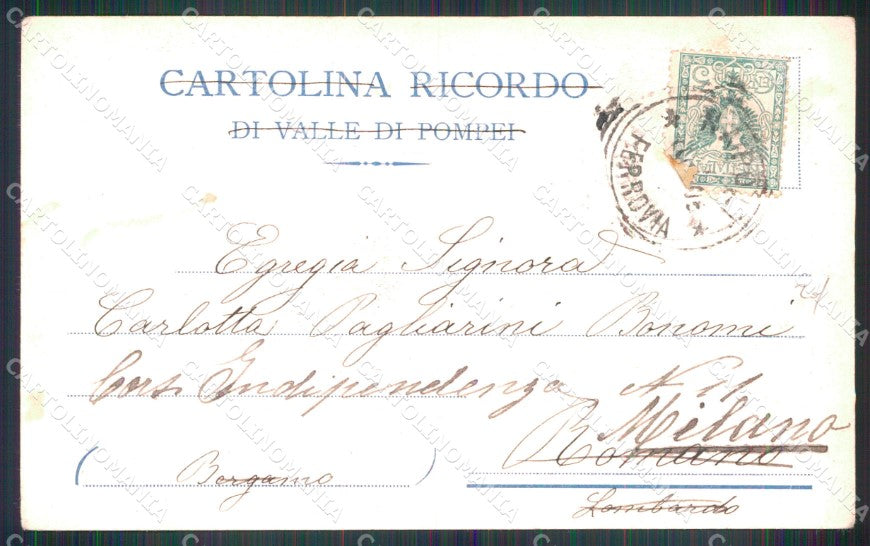 CARTOLINA RICORDO
DI VALLE DI POMPEI
FERROVIA
Egregia Signora
Carlotta Pagliarini Bonomi
Corso Indipendenza N 11
Milano
Romano
(Bergamo)
Lombardo
CARTOLINOMANIA